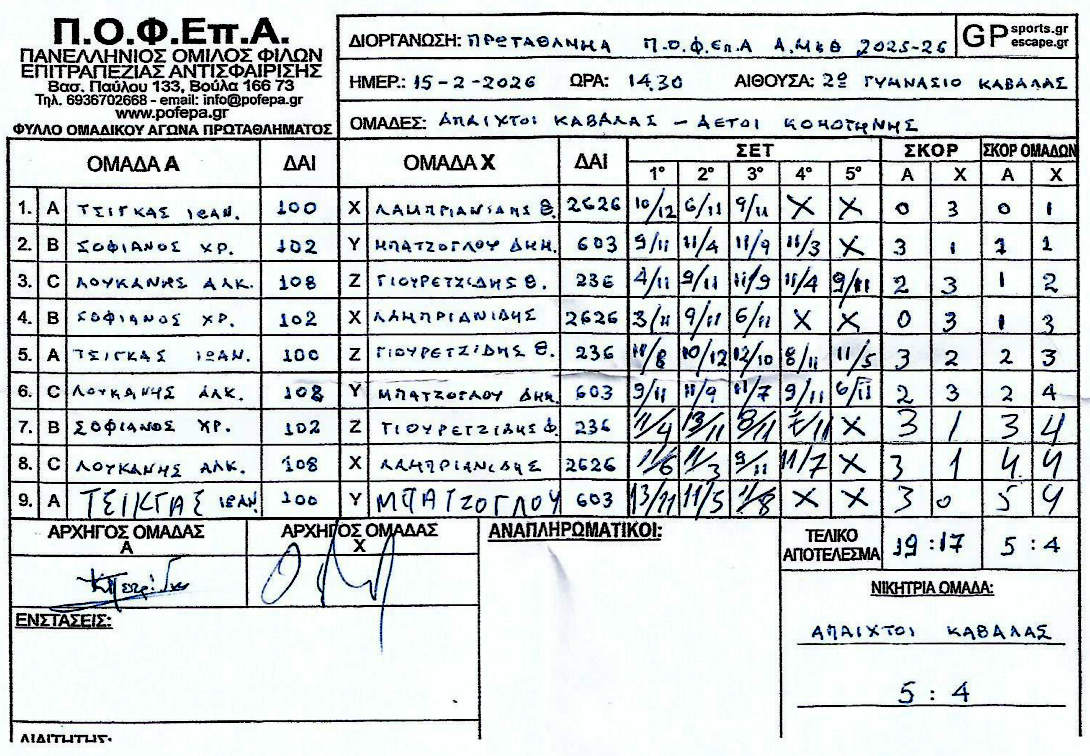 Π.Ο.Φ.Επ.Α.
ΠΑΝΕΛΛΗΝΙΟΣ ΟΜΙΛΟΣ ΦΙΛΩΝ
ΕΠΙΤΡΑΠΕΖΙΑΣ ΑΝΤΙΣΦΑΙΡΙΣΗΣ
Βασ. Παύλου 133, Βούλα 166 73
Τηλ. 6936702668 - email: info@pofepa.gr
www.pofepa.gr
ΦΥΛΛΟ ΟΜΑΔΙΚΟΥ ΑΓΩΝΑ ΠΡΩΤΑΘΛΗΜΑΤΟΣ
ΔΙΟΡΓΑΝΩΣΗ: ΠΡΩΤΑΘΛΗΜΑ Π.Ο.Φ.ΕΠ.Α Α.Μ&Θ 2025-26
GP sports.gr escape.gr
ΗΜΕΡ.: 15-2-2026 ΩΡΑ: 14.30 ΑΙΘΟΥΣΑ: 2Ο ΓΥΜΝΑΣΙΟ ΚΑΒΑΛΑΣ
ΟΜΑΔΕΣ: ΑΠΑΙΧΤΟΙ ΚΑΒΑΛΑΣ - ΑΕΤΟΙ ΚΟΜΟΤΗΝΗΣ
ΟΜΑΔΑ Α ΔΑΙ ΟΜΑΔΑ Χ ΔΑΙ ΣΕΤ ΣΚΟΡ ΣΚΟΡ ΟΜΑΔΩΝ
1° 2° 3° 4° 5° Α Χ Α Χ
1. Α ΤΣΙΓΚΑΣ ΙΩΑΝ. 100 Χ ΛΑΜΠΡΙΑΝΙΔΗΣ Θ. 2626 10/12 6/11 9/11 X X 0 3 0 1
2. Β ΣΟΦΙΑΝΟΣ ΧΡ. 102 Υ ΜΠΑΤΖΟΓΛΟΥ ΔΗΜ. 603 9/11 11/4 11/9 11/3 X 3 1 1 1
3. C ΛΟΥΚΑΝΗΣ ΑΛΚ. 108 Ζ ΓΙΟΥΡΕΤΖΙΔΗΣ Θ. 236 4/11 9/11 11/9 11/4 9/11 2 3 1 2
4. Β ΣΟΦΙΑΝΟΣ ΧΡ. 102 Χ ΛΑΜΠΡΙΑΝΙΔΗΣ 2626 3/11 9/11 6/11 X X 0 3 1 3
5. Α ΤΣΙΓΚΑΣ ΙΩΑΝ. 100 Ζ ΓΙΟΥΡΕΤΖΙΔΗΣ Θ. 236 11/8 10/12 12/10 8/11 11/5 3 2 2 3
6. C ΛΟΥΚΑΝΗΣ ΑΛΚ. 108 Υ ΜΠΑΤΖΟΓΛΟΥ ΔΗΜ. 603 9/11 11/9 11/7 9/11 6/11 2 3 2 4
7. Β ΣΟΦΙΑΝΟΣ ΧΡ. 102 Ζ ΓΙΟΥΡΕΤΖΙΔΗΣ 236 11/4 13/11 8/11 X 3 1 3 4
8. C ΛΟΥΚΑΝΗΣ ΑΛΚ. 108 Χ ΛΑΜΠΡΙΑΝΙΔΗΣ 2626 11/6 11/3 9/11 11/7 X 3 1 4 4
9. Α ΤΣΙΓΚΑΣ ΙΩΑΝ. 100 Υ ΜΠΑΤΖΟΓΛΟΥ 603 13/11 11/5 11/8 X X 3 0 5 4
ΑΡΧΗΓΟΣ ΟΜΑΔΑΣ Α
ΑΡΧΗΓΟΣ ΟΜΑΔΑΣ Χ
ΑΝΑΠΛΗΡΩΜΑΤΙΚΟΙ:
ΤΕΛΙΚΟ ΑΠΟΤΕΛΕΣΜΑ 19:17 5:4
ΝΙΚΗΤΡΙΑ ΟΜΑΔΑ:
ΕΝΣΤΑΣΕΙΣ:
ΑΠΑΙΧΤΟΙ ΚΑΒΑΛΑΣ
5:4
ΔΙΑΙΤΗΤΗΣ: